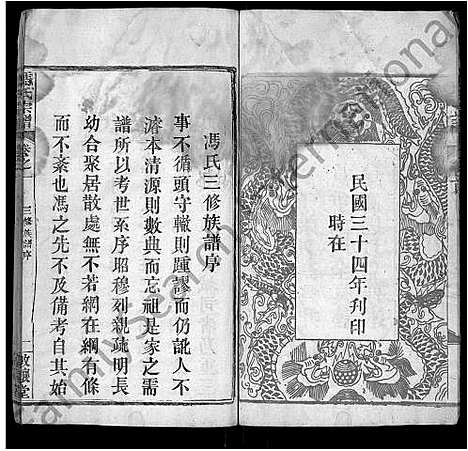 民國三十四年刋印
時在
馮氏三修族譜序
事不循頭守轍則踵謬而仍訛人不
濬本清源則數典而忘祖是家之需
譜所以考世系序昭穆列親疏明長
幼合聚居散處無不若網在綱有條
而不紊也馮之先不及備考自其始
馮氏宗譜
卷之一
三修族譜序
一
敦厚堂
Family Search International